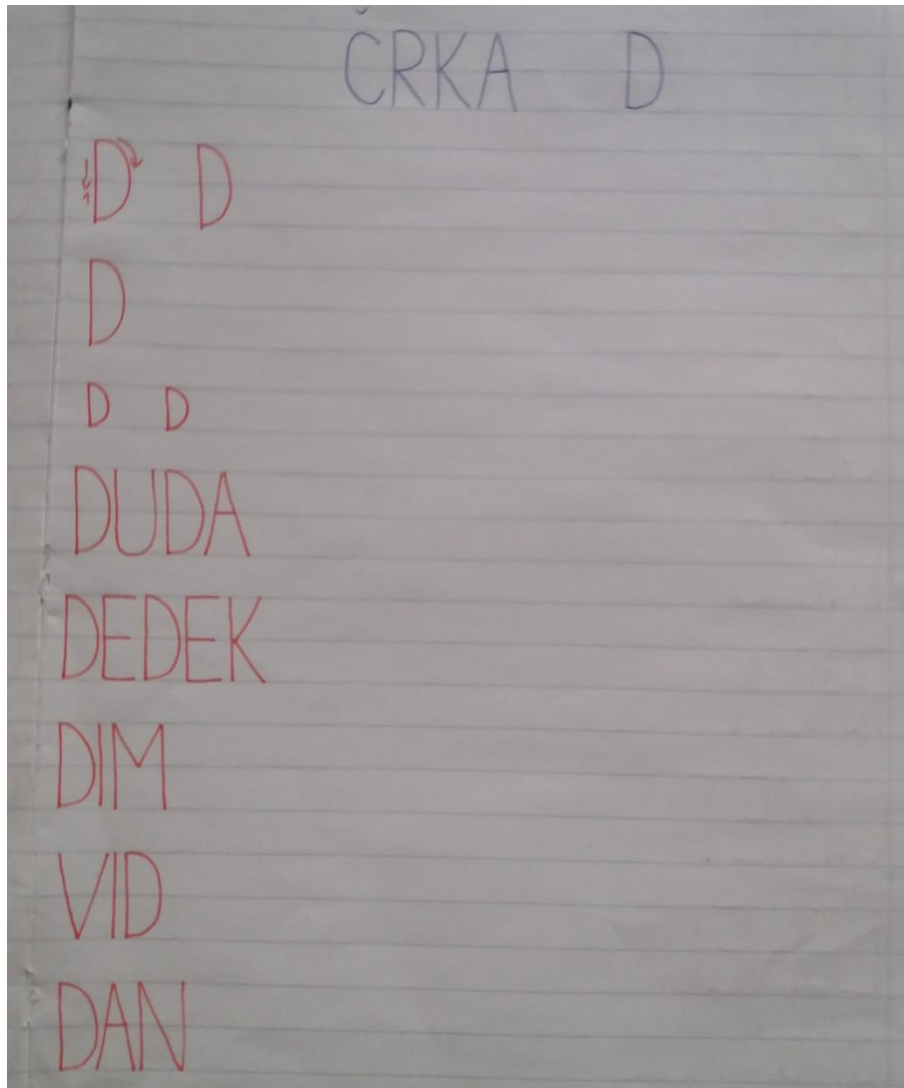 ČRKA D
D D
D
D D
DUDA
DEDEK
DIM
VID
DAN